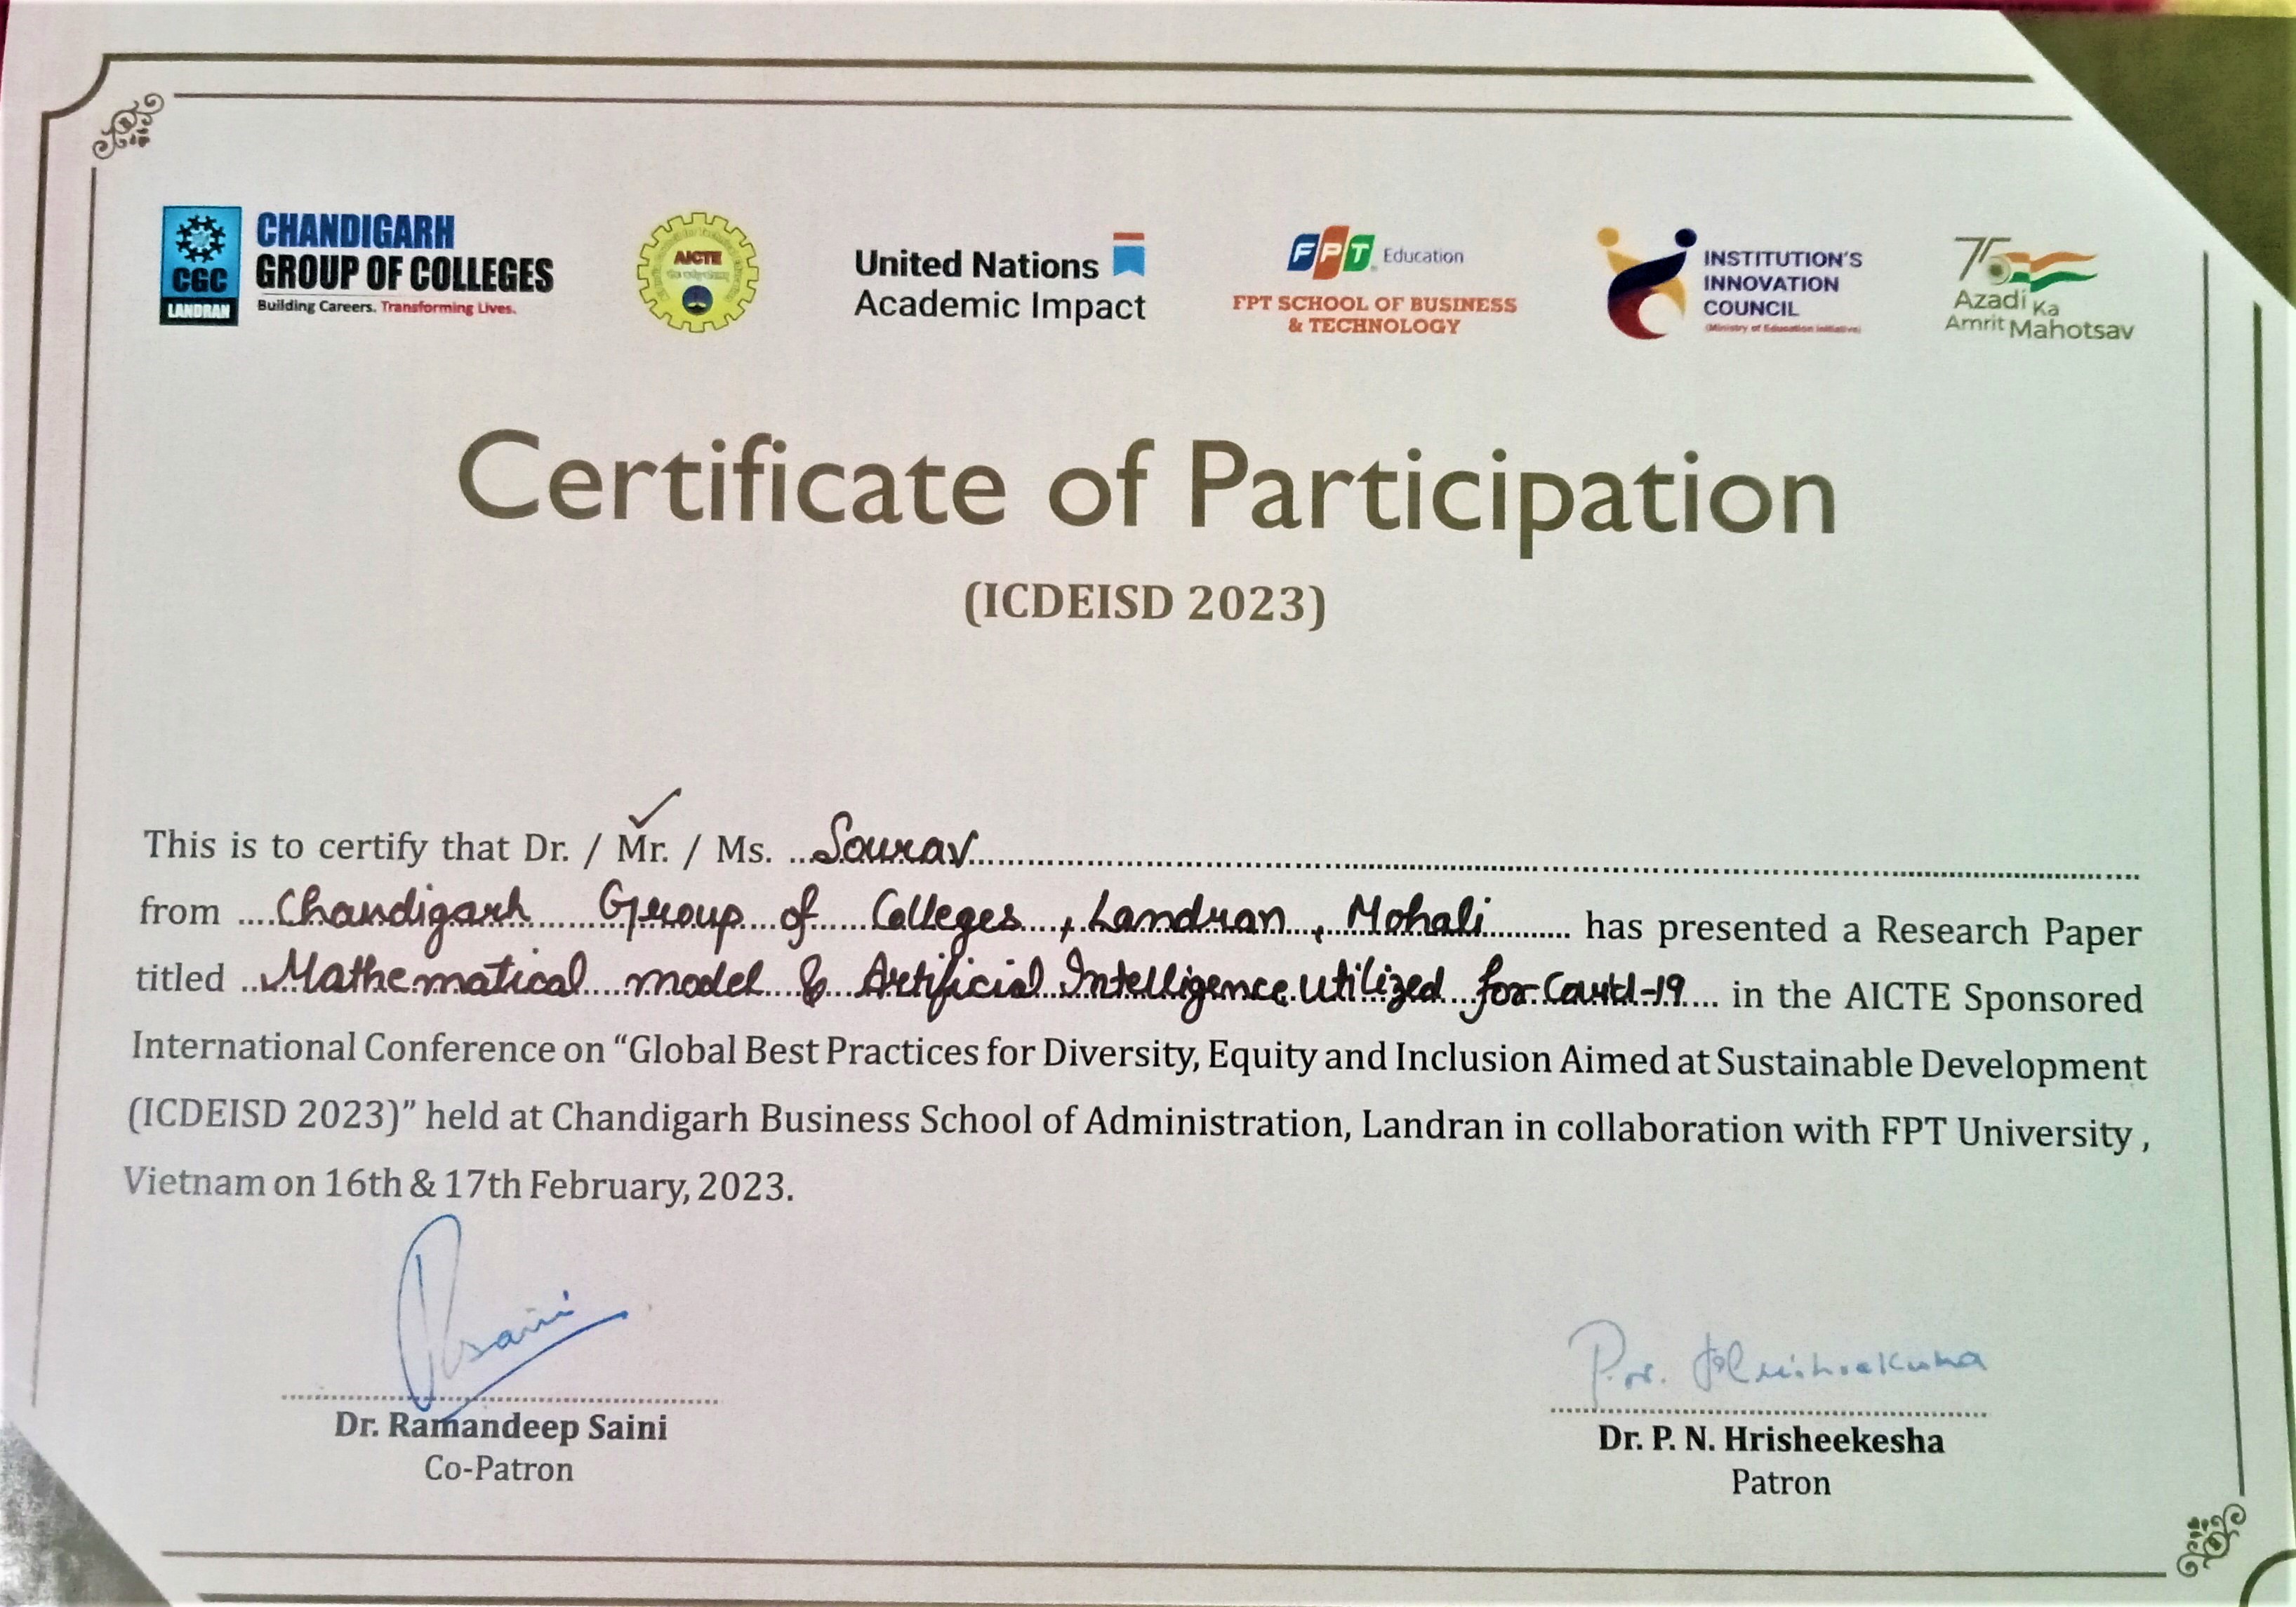 CHANDIGARH
GROUP OF COLLEGES
Building Careers. Transforming Lives.
CGC
LANDRAN
AICTE
United Nations
Academic Impact
FPT Education
FPT SCHOOL OF BUSINESS
& TECHNOLOGY
INSTITUTION'S
INNOVATION
COUNCIL
(Ministry of Education Initiative)
75
Azadi Ka
Amrit Mahotsav
Certificate of Participation
(ICDEISD 2023)
This is to certify that Dr. / Mr. / Ms. Sourav
from Chandigarh Group of Colleges, Landran, Mohali has presented a Research Paper
titled Mathematical model & Artificial Intelligence utilized for Covid-19 in the AICTE Sponsored
International Conference on “Global Best Practices for Diversity, Equity and Inclusion Aimed at Sustainable Development
(ICDEISD 2023)” held at Chandigarh Business School of Administration, Landran in collaboration with FPT University ,
Vietnam on 16th & 17th February, 2023.
Dr. Ramandeep Saini
Co-Patron
Dr. P. N. Hrisheekesha
Patron